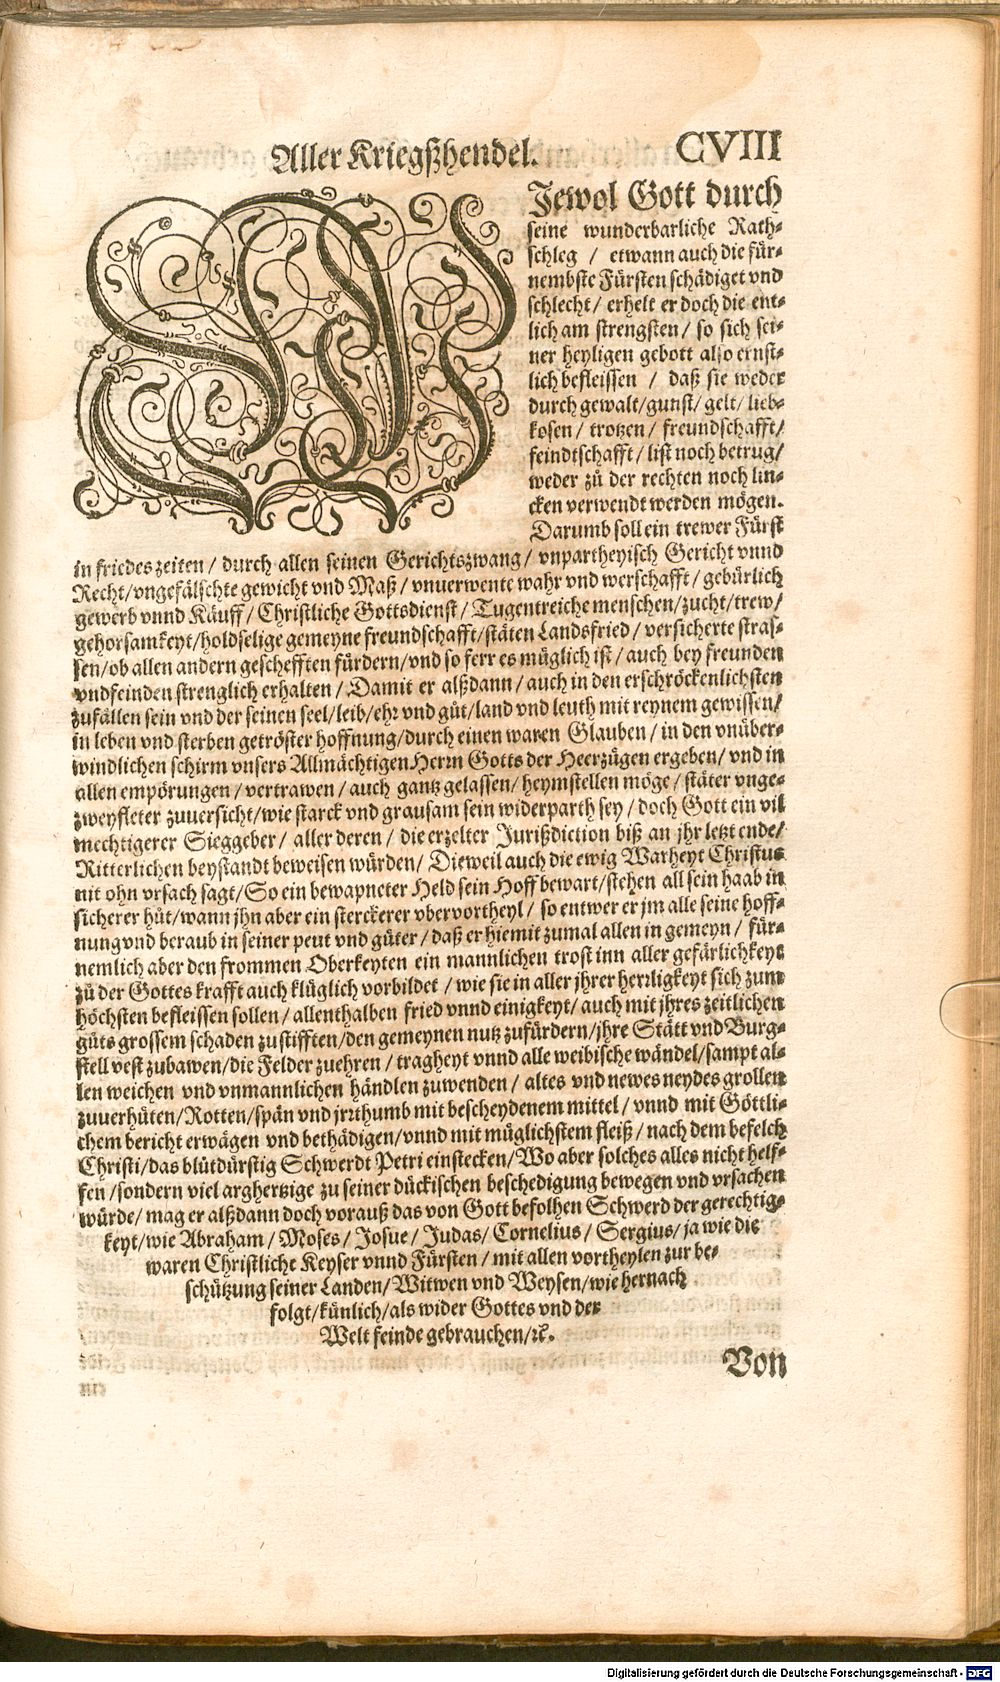 Aller Kriegßhendel. CVIII
WJewol Gott durch
seine wunderbarliche Rath-
schleg / etwann auch die für-
nembste Fürsten schädiget vnd
schlecht / erhelt er doch die ent-
lich am strengsten / so sich sei-
ner heyligen gebott also ernst-
lich befleissen / daß sie weder
durch gewalt / gunst / gelt / lieb-
kosen / trotzen / freundschafft /
feindtschafft / list noch betrug /
weder zů der rechten noch lin-
cken verwendt werden mögen.
Darumb soll ein trewer Fürst
in friedes zeiten / durch allen seinen Gerichtszwang / vnpartheyisch Gericht vnnd
Recht / vngefälschte gewicht vnd Maß / vnuerwente wahr vnd werschafft / gebürlich
gewerb vnnd Käuff / Christliche Gottsdienst / Tugentreiche menschen / zucht / trew /
gehorsamkeyt / holdselige gemeyne freundschafft / stäten Landsfried / versicherte stras-
sen / ob allen andern geschefften fürdern / vnd so ferr es müglich ist / auch bey freunden
vnd feinden strenglich erhalten / Damit er alßdann / auch in den erschröckenlichsten
zufällen sein vnd der seinen seel / leib / ehr vnd gůt / land vnd leuth mit reynem gewissen /
in leben vnd sterben getröster hoffnung / durch einen waren Glauben / in den vnüber-
windlichen schirm vnsers Allmächtigen Herrn Gotts der Heerzügen ergeben / vnd in
allen empörungen / vertrawen / auch gantz gelassen / heymstellen möge / stäter vnge-
zweyfleter zuuersicht / wie starck vnd grausam sein widerparth sey / doch Gott ein vil
mechtigerer Sieggeber / aller deren / die erzelter Jurißdiction biß an jhr letzt ende /
Ritterlichen beystandt beweisen würden / Dieweil auch die ewig Warheyt Christus
nit ohn vrsach sagt / So ein bewapneter Held sein Hoff bewart / stehen all sein haab in
sicherer hůt / wann jhn aber ein sterckerer vbervortheyl / so entwer er jm alle seine hoff-
nung vnd beraub in seiner peut vnd güter / daß er hiemit zumal allen in gemeyn / für-
nemlich aber den frommen Oberkeyten ein mannlichen trost inn aller gefärlichkeyt
zů der Gottes krafft auch klüglich vorbildet / wie sie in aller jhrer herrligkeyt sich zum
höchsten befleissen sollen / allenthalben fried vnnd einigkeyt / auch mit jhres zeitlichen
gůts grossem schaden zu stifften / den gemeynen nutz zufürdern / jhre Stätt vnd Burg-
stell vest zubawen / die Felder zuehren / tragheyt vnnd alle weibische wändel / sampt al-
len weichen vnd vnmannlichen händlen zuwenden / altes vnd newes neydes grollen
zuuerhüten / Rotten / spän vnd jrrthumb mit bescheydenem mittel / vnnd mit Göttli-
chem bericht erwägen vnd bethädigen / vnnd mit müglichstem fleiß / nach dem befelch
Christi / das blůtdürstig Schwerdt Petri einstecken / Wo aber solches alles nicht helf-
fen / sondern viel arghertzige zu seiner dückischen beschedigung bewegen vnd vrsachen
würde / mag er alßdann doch vorauß das von Gott befolhen Schwerd der gerechtig-
keyt / wie Abraham / Moses / Josue / Judas / Cornelius / Sergius / ja wie die
waren Christliche Keyser vnnd Fürsten / mit allen vortheylen zur be-
schützung seiner Landen / Witwen vnd Weysen / wie hernach
folgt / künlich / als wider Gottes vnd der
Welt feinde gebrauchen / ꝛc̃.
Von
Digitalisierung gefördert durch die Deutsche Forschungsgemeinschaft - DFG